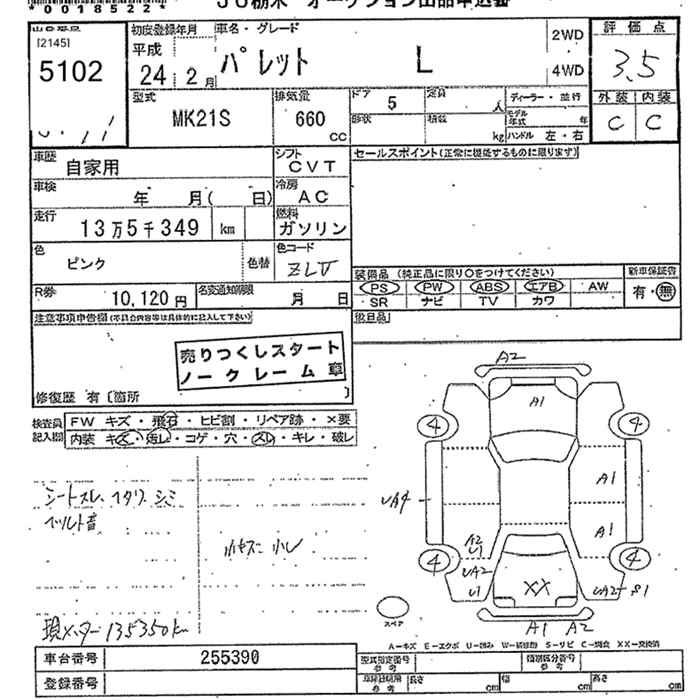 *0018522*
JU栃木 オークション出品申込書
[2145]
5102
初度登録年月
平成
24年 2月
車名・グレード
パレット L
2WD
4WD
評価点
3.5
外装 内装
C C
型式
MK21S
排気量
660
CC
ドア
5
定員
人
形状
積載
kg
ディーラー・並行
モデル年式
年
ハンドル 左・右
車歴
自家用
シフト
CVT
セールスポイント(正常に機能するものに限ります)
車検
年 月( 日)
冷房
AC
走行
13万5千349 km
燃料
ガソリン
色
ピンク
色替
色コード
ZLV
装備品 (純正品に限り〇をつけてください)
新車保証書
PS PW ABS エアB AW
有・無
SR ナビ TV カワ
R券
10,120円
名変通知期限
月 日
注意事項申告欄(不具合内容等は具体的に記入して下さい)
後日品
売りつくしスタート
ノークレーム車
修復歴 有〔箇所 〕
検査員
記入欄
FW キズ・飛石・ヒビ割・リペア跡・×要
内装 キズ・汚レ・コゲ・穴・スレ・キレ・破レ
シートスレ、ヘタリ、シミ
ベルト音
小キズ 小凹
現メーター 135350km
A2
A1
4 4
A1
UA4
A1
A2
U1
4 4
UA2
U1
XX
UA2 S1
スペア
A1 A2
A=キズ E=エクボ U=凹み W=補修跡 S=サビ C=腐食 XX=交換済
車台番号
255390
登録番号
型式指定番号
参考
類別区分番号
参考
車検証記載
参考
長さ
cm
幅
cm
高さ
cm